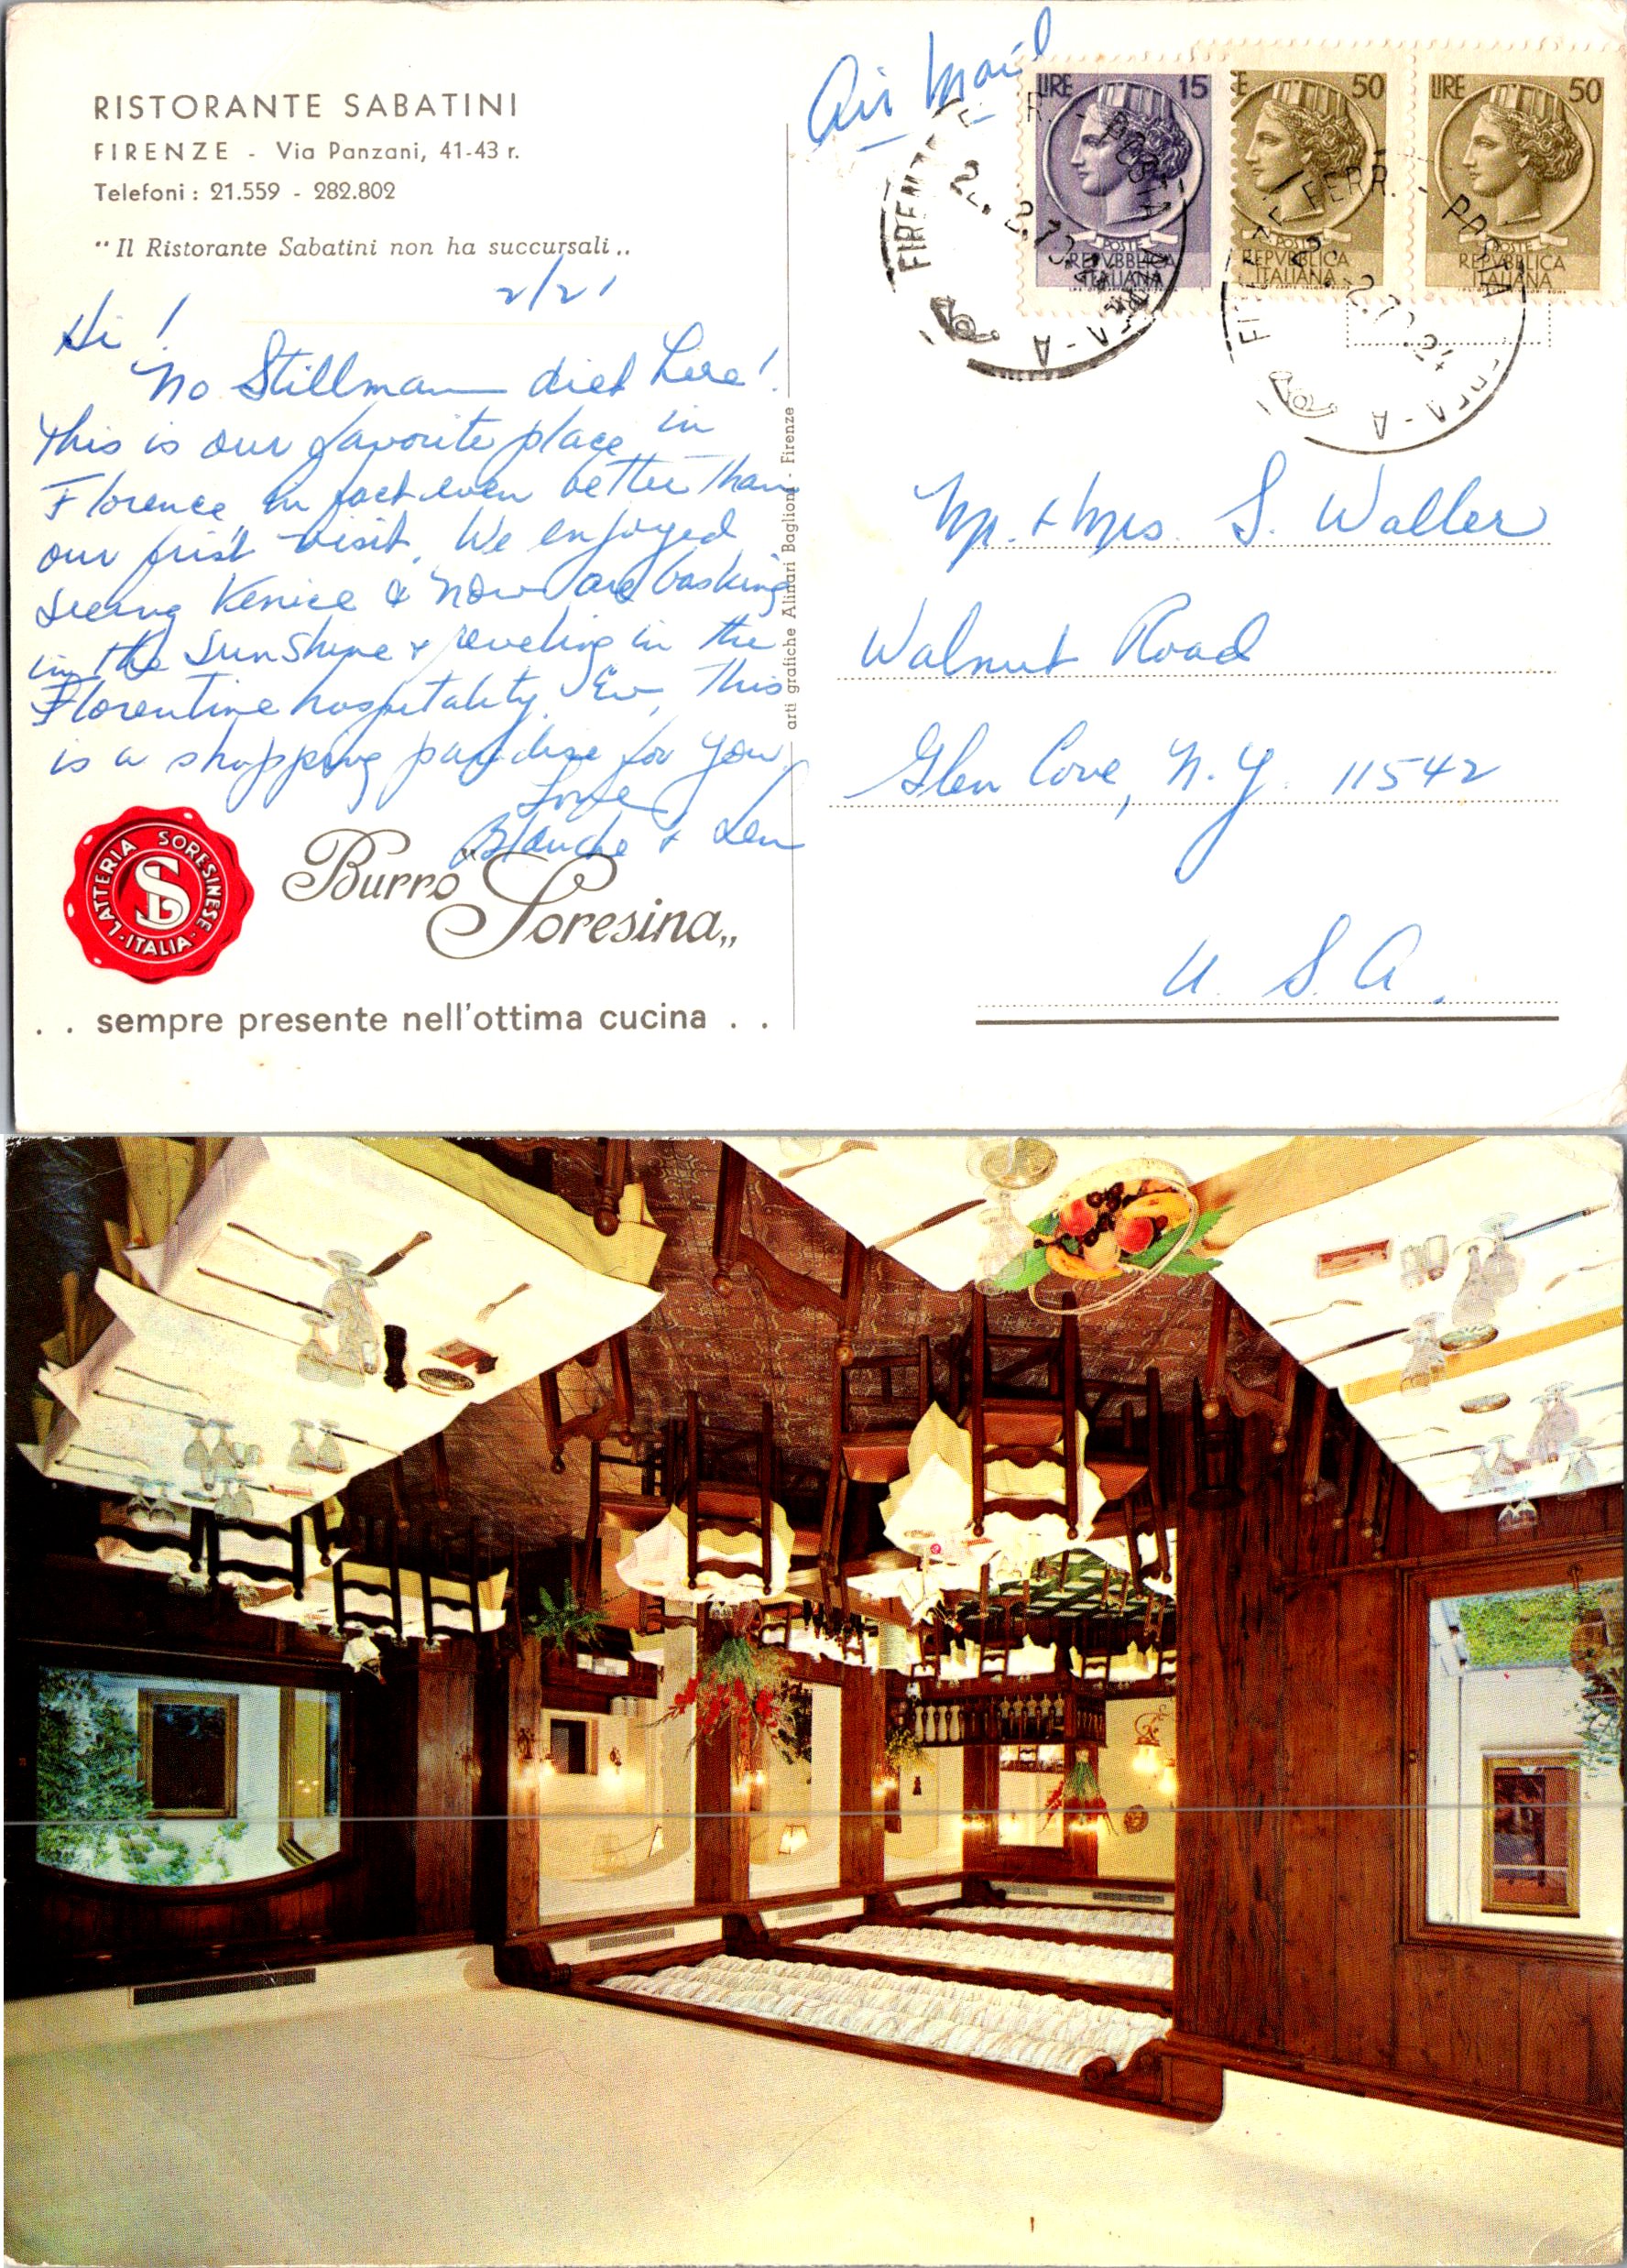 RISTORANTE SABATINI
FIRENZE - Via Panzani, 41-43 r.
Telefoni: 21.559 - 282.802
"Il Ristorante Sabatini non ha succursali..
2/21
Hi!
No Stillman diet here!
This is our favorite place in
Florence, in fact even better than
our first visit. We enjoyed
seeing Venice & now are basking
in the sunshine & reveling in the
Florentine hospitality. Ev, this
is a shopping paradise for you.
Love
Blanche & Len
LATTERIA SORESINESE
ITALIA
Burro "Soresina„
. . sempre presente nell'ottima cucina . .
arti grafiche Alinari Baglioni - Firenze
Air Mail
LIRE 15
POSTE
REPVBBLICA
ITALIANA
LIRE 50
POSTE
REPVBBLICA
ITALIANA
LIRE 50
POSTE
REPVBBLICA
ITALIANA
FIRENZE FERR.
Mr. & Mrs. S. Waller
Walnut Road
Glen Cove, N.Y. 11542
U. S. A.